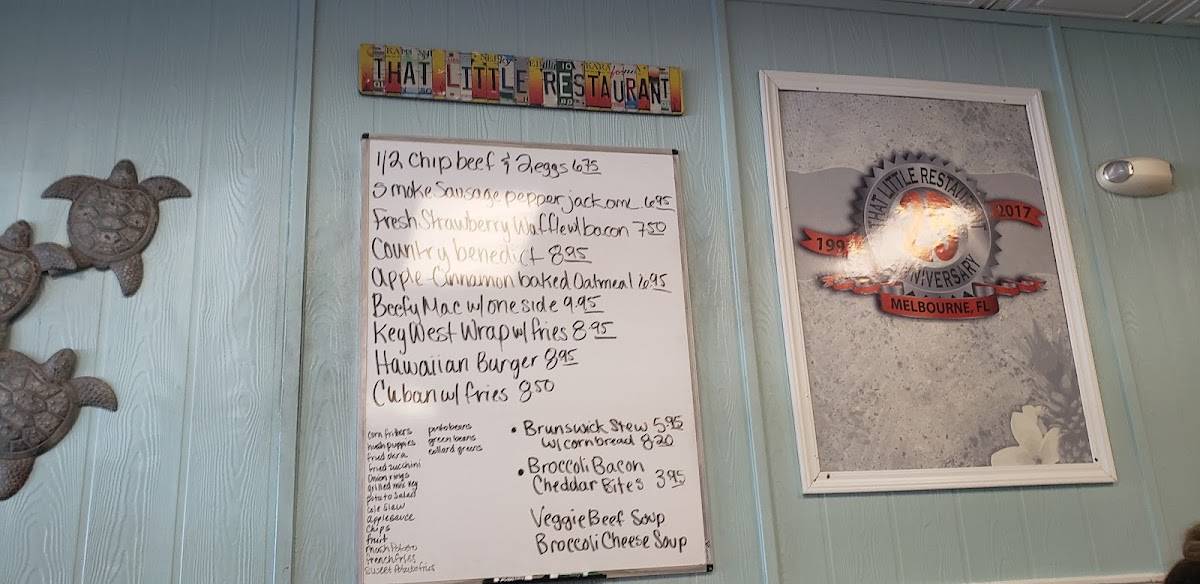 THAT LITTLE RESTAURANT
1/2 Chip beef & 2 eggs 6.75
Smoke Sausage pepper jack oml 6.95
Fresh Strawberry Waffle w/ bacon 7.50
Country benedict 8.95
Apple-Cinnamon baked Oatmeal 6.95
Beefy Mac w/ one side 9.95
Key West Wrap w/ fries 8.95
Hawaiian Burger 8.95
Cuban w/ fries 8.50
corn fritters
hush puppies
fried okra
fried zucchini
Onion rings
grilled mix veg
potato Salad
Cole Slaw
applesauce
Chips
fruit
mash Potato
french fries
Sweet Potato fries
pinto beans
green beans
collard greens
• Brunswick Stew 5.95
w/ cornbread 8.20
• Broccoli Bacon
Cheddar Bites 3.95
Veggie Beef Soup
Broccoli Cheese Soup
THAT LITTLE RESTAURANT
25
199
2017
ANNIVERSARY
MELBOURNE, FL